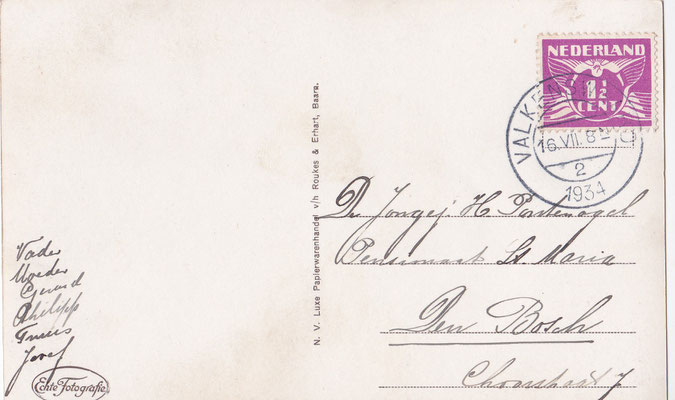 NEDERLAND
1½
CENT
VALKEN
16.VII.8
2
1934
N. V. Luxe Papierwarenhandel v/h Roukes & Erhart, Baarn.
Jongej H
Pensionaat St. Maria
Den Bosch
Vader
Moeder
Gerard
Philipp
Truus
Josef
Echte Fotografie